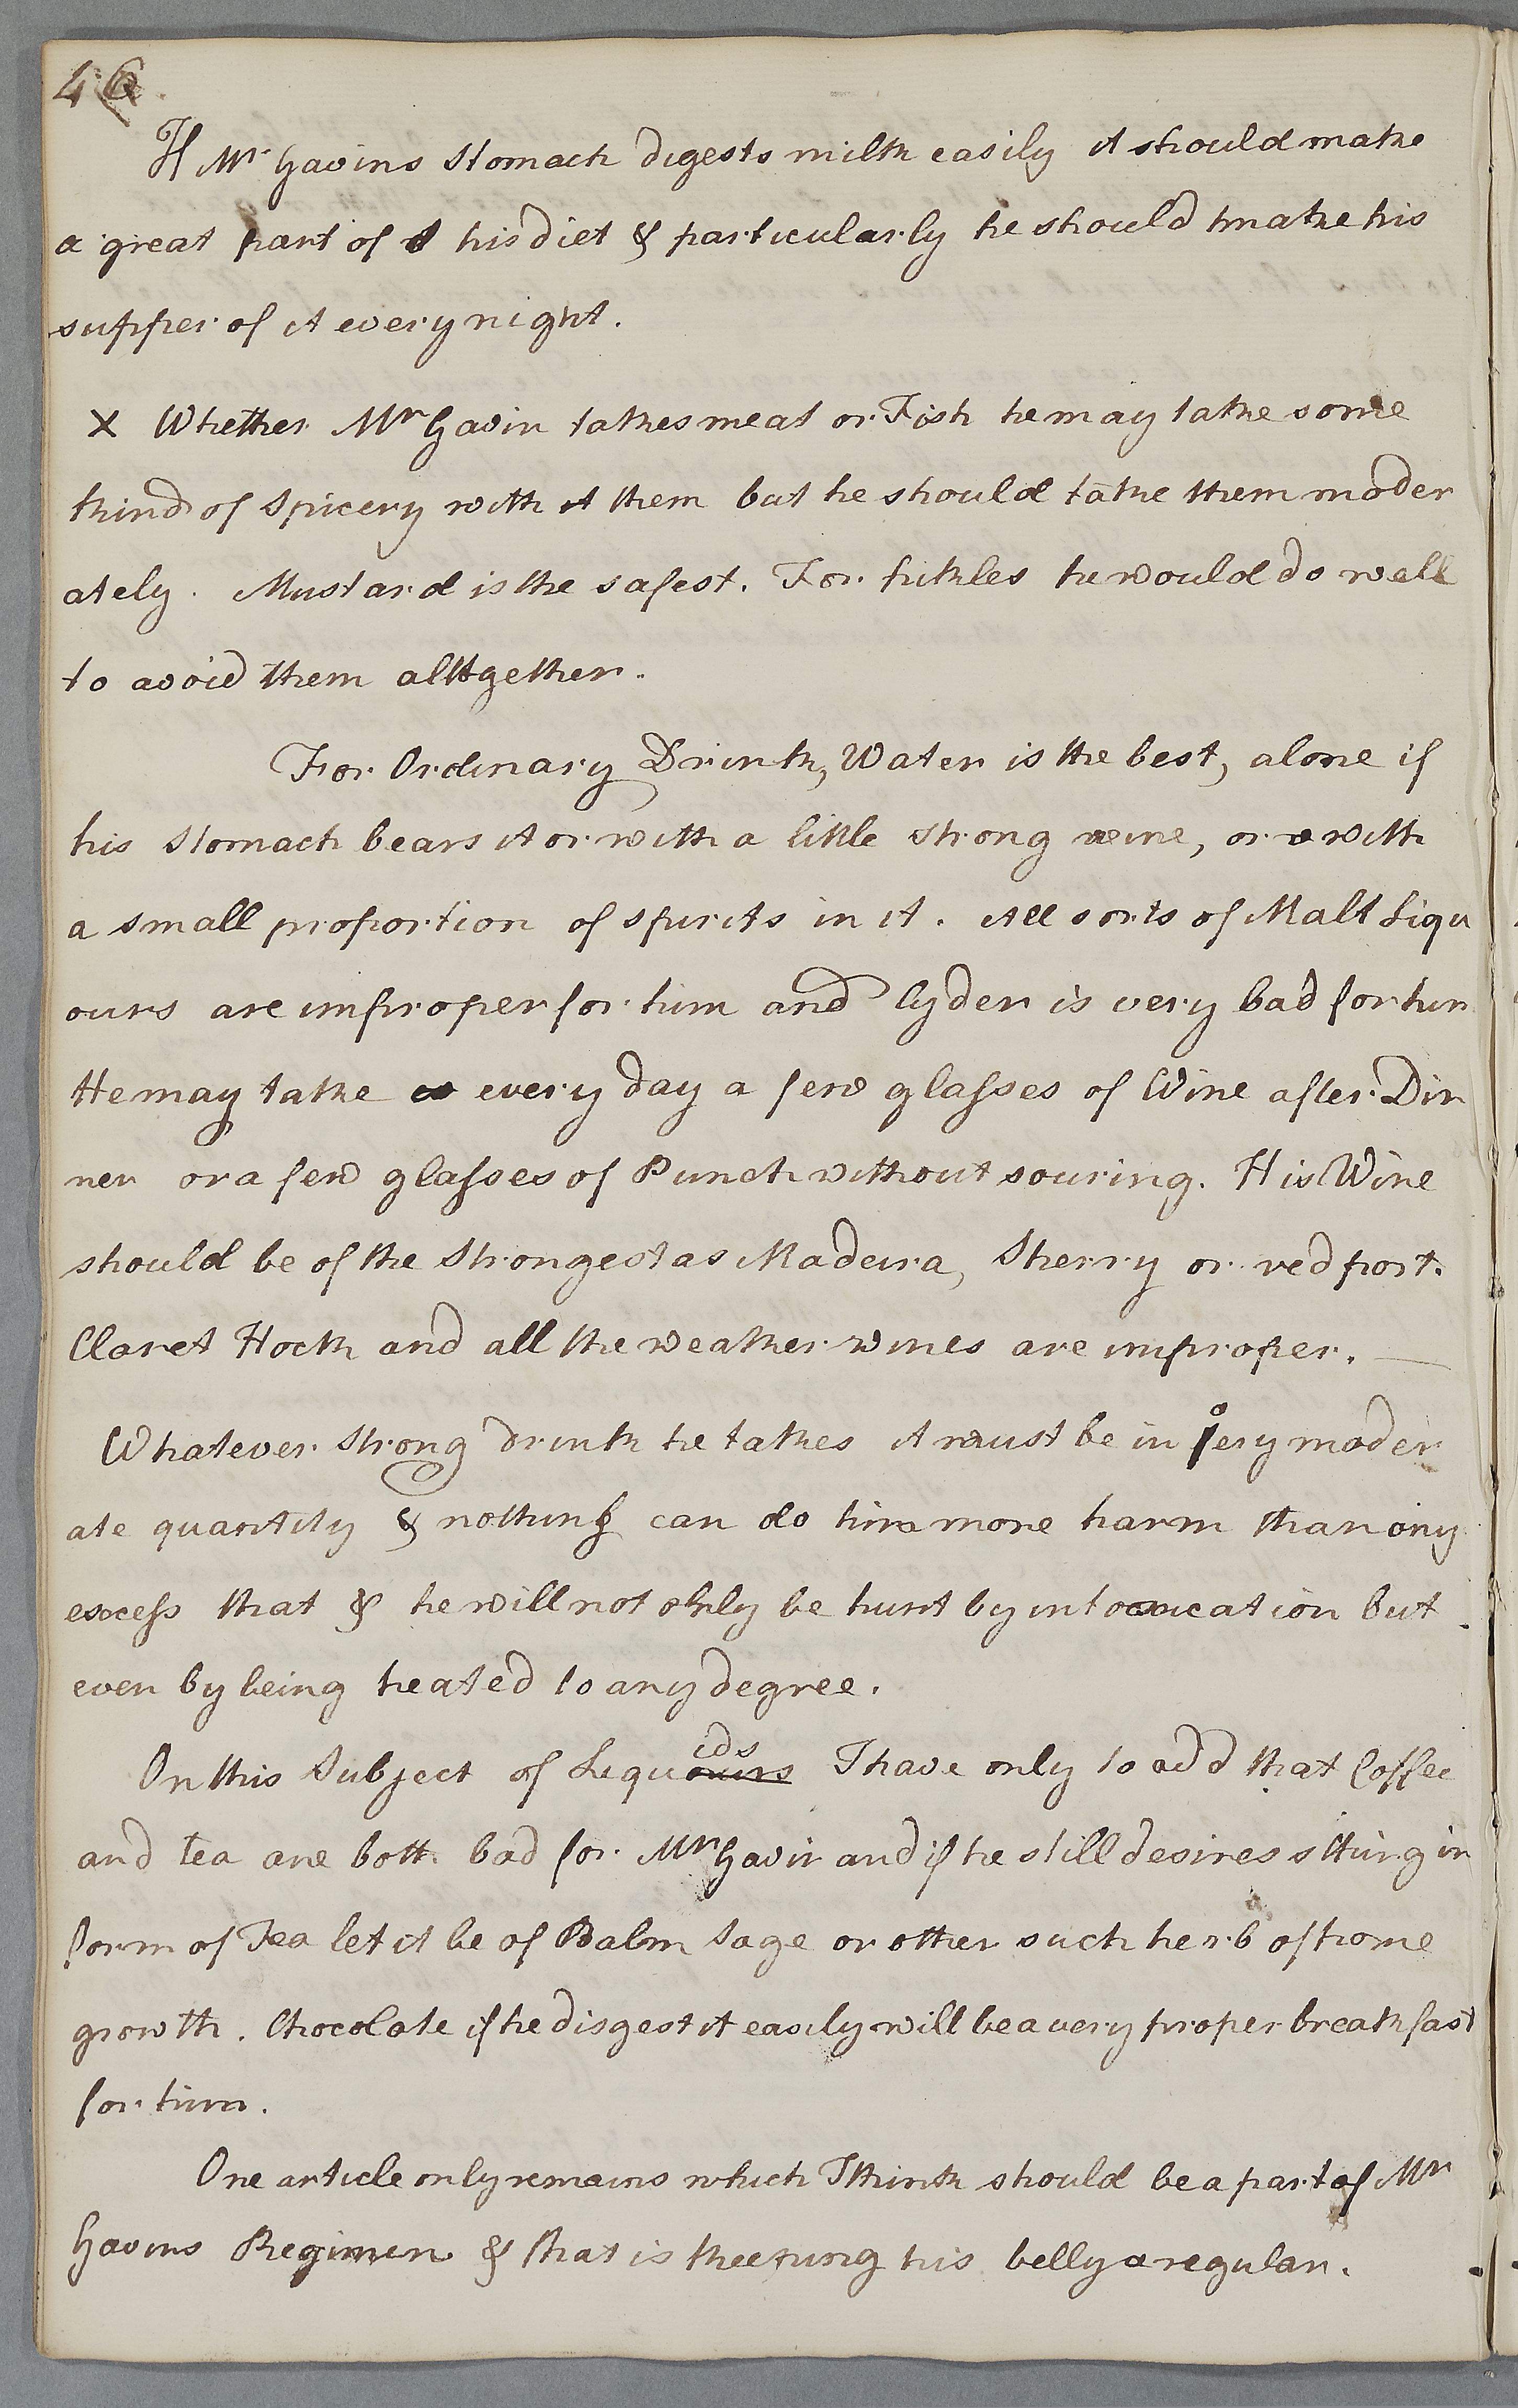 46
If Mr Gavins Stomach digests milk easily it should make
a great part of his diet & particularly he should make his
supper of it every night.
X Whether Mr Gavin takes meat or Fish he may take some
kind of Spicery with it them but he should take them moder
ately. Mustard is the safest. For pikles he would do well
to avoid them alltgether.
For Ordinary Drink, Water is the best, alone if
his Stomach bears it or with a little strong wine, or with
a small proportion of spirits in it. All sorts of Malt Liqu
ours are improper for him and Cyder is very bad for him
He may take every day a few glasses of Wine after Din
ner or a few glasses of Punch without souring. His Wine
should be of the Strongest as Madeira, Sherry or red port.
Claret Hock and all the weaker wines are improper.
Whatever Strong drink he takes it must be in very moder
ate quantity & nothing can do him more harm than any
excess that & he will not only be hurt by intoxication but
even by being heated to any degree.
On this Subject of Liquours ids I have only to add that Coffee
and tea are both bad for Mr Gavin and if he still desires sthing in
form of Tea let it be of Balm Sage or other such herb of home
growth. Chocolate if he disgest it easily will be a very proper breakfast
for him.
One article only remains which I think should be a part of Mr
Gavins Regimen & that is keeping his belly regular.